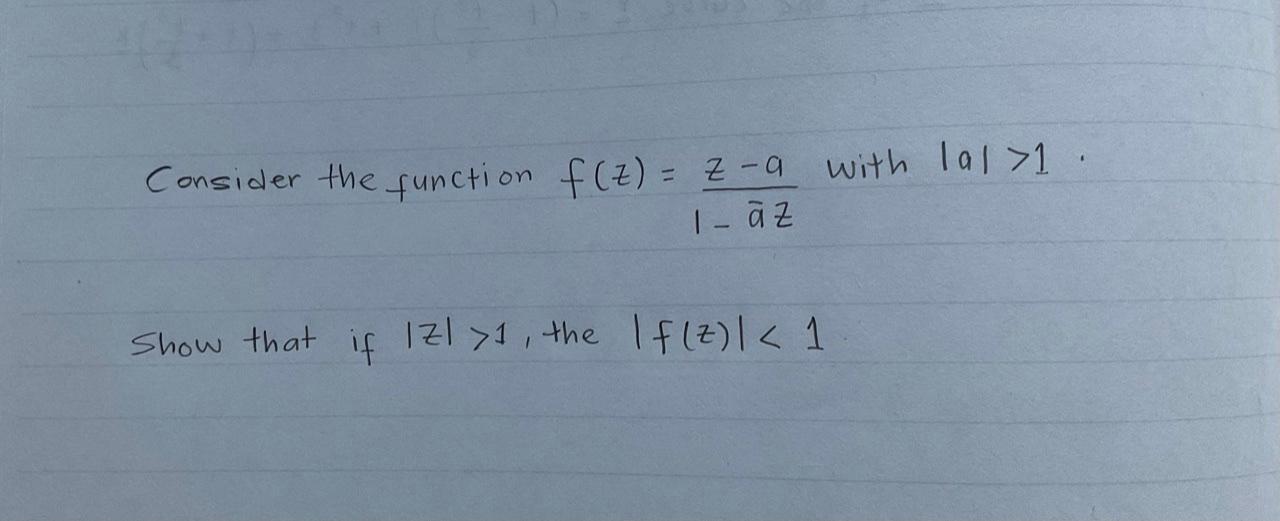 Consider the function f(z) = z - a / 1 - āz with |a| >1 .
Show that if |z| >1 , the |f(z)| < 1